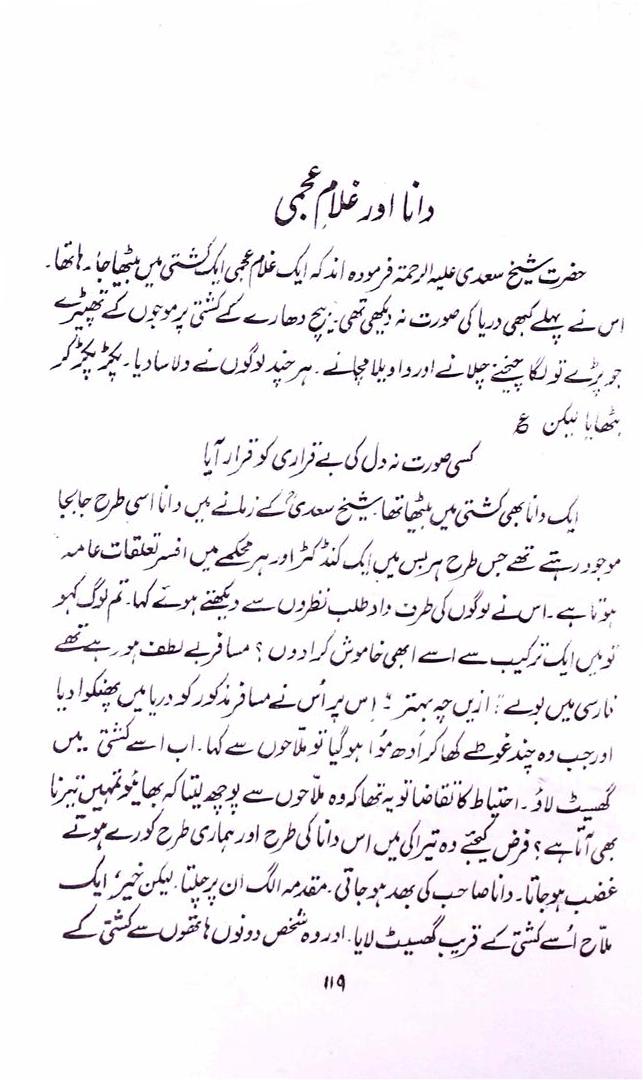 دانا اور غلامِ عجمی
حضرت شیخ سعدی علیہ الرحمۃ فرمودہ اند کہ ایک غلام عجمی ایک کشتی میں بیٹھا جا رہا تھا۔
اس نے پہلے کبھی دریا کی صورت نہ دیکھی تھی۔ بیچ دھارے کے کشتی پر موجوں کے تھپیڑے
جو پڑے تو لگا چیخنے چلانے اور واویلا مچانے۔ ہر چند لوگوں نے دلاسا دیا۔ پکڑ پکڑ کر
بٹھایا لیکن ؏
کسی صورت نہ دل کی بے قراری کو قرار آیا
ایک دانا بھی کشتی میں بیٹھا تھا شیخ سعدیؒ کے زمانے میں دانا اسی طرح جابجا
موجود رہتے تھے جس طرح ہر بس میں ایک کنڈکٹر اور ہر محکمے میں افسر تعلقات عامہ
ہوتا ہے۔ اس نے لوگوں کی طرف داد طلب نظروں سے دیکھتے ہوئے کہا۔ تم لوگ کہو
تو میں ایک ترکیب سے اسے ابھی خاموش کرا دوں؟ مسافر بے لطف ہو رہے تھے
فارسی میں بولے "ازیں چہ بہتر" اس پر اُس نے مسافر مذکور کو دریا میں پھنکوا دیا
اور جب وہ چند غوطے کھا کر ادھ مُوا ہو گیا تو ملّاحوں سے کہا۔ اب اسے کشتی میں
گھسیٹ لاؤ۔ احتیاط کا تقاضا تو یہ تھا کہ وہ ملّاحوں سے پوچھ لیتا کہ بھائیو تمہیں تیرنا
بھی آتا ہے؟ فرض کیجئے وہ تیراکی میں اس دانا کی طرح اور ہماری طرح کورے ہوتے
غضب ہو جاتا۔ دانا صاحب کی بھد ہو جاتی۔ مقدمہ الگ ان پر چلتا۔ لیکن خیر، ایک
ملّاح اُسے کشتی کے قریب گھسیٹ لایا۔ اور وہ شخص دونوں ہاتھوں سے کشتی کے
۱۱۹